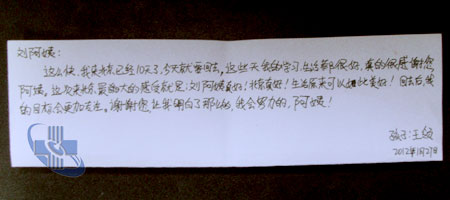 刘阿姨：
这么快，我来北京已经10天了，今天就要回去，这些天我的学习、生活都很好，真的很感谢您
阿姨。这次来北京，最大的感受就是：刘阿姨真好！北京真好！生活原来可以如此美好！回去后，我
的目标会更加远大。谢谢您，让我明白了那么多，我会努力的，阿姨！
孩子：王
2012年1月27日